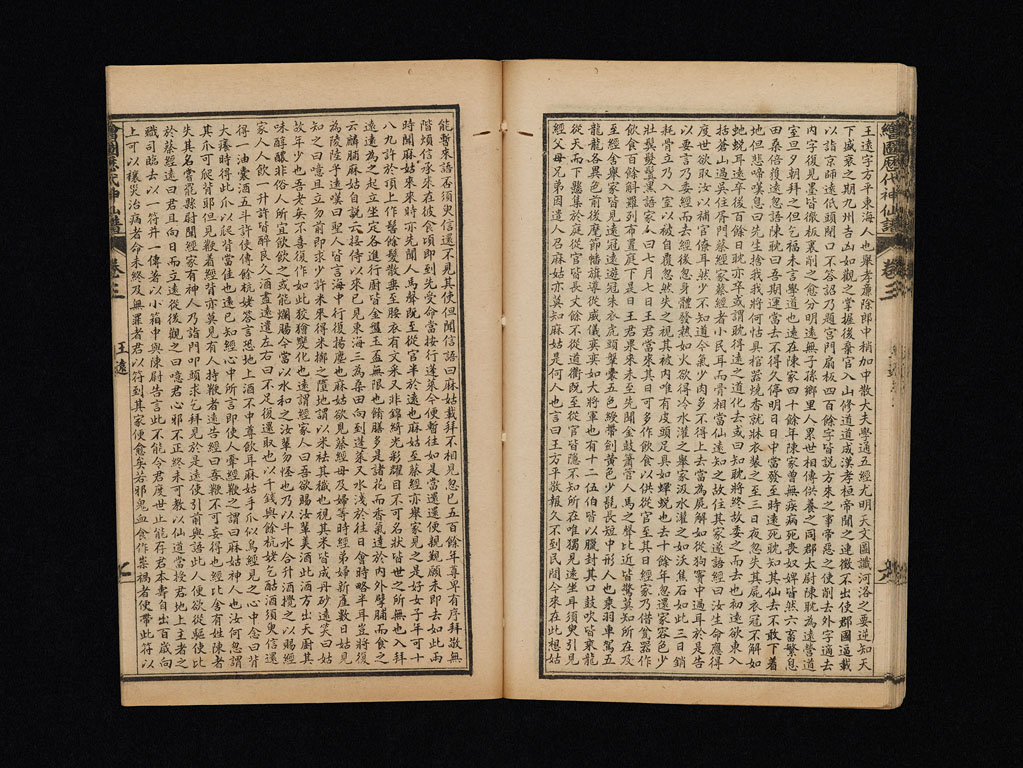 王遠字方平東海人也舉孝廉除郎中稍加中散大夫學通五經尤明天文圖讖河洛之要逆知天
下盛衰之期九州吉凶如觀之掌握後棄官入山修道道成漢孝桓帝聞之連徵不出使郡國逼載
以詣京師遠低頭閉口不答詔乃題宮門扇板四百餘字皆說方來之事帝惡之使削去外字適去
內字復見墨皆徹板裏削之愈分明遠無子孫鄉里人累世相傳供養之同郡太尉陳耽為遠營道
室旦夕朝拜之但乞福未言學道也遠在陳家四十餘年陳家曾無疾病死喪奴婢皆然六畜繁息
田桑倍獲遠忽語陳耽曰吾期運當去不得久停明日日中當發至時遠死耽知其仙去不敢下著
地但悲啼嘆息曰先生捨我我將何怙具棺器燒香就牀衣裝之至三日夜忽失其屍衣冠不解如
蛇蛻耳遠卒後百餘日耽亦卒或謂耽得遠之道化去或曰知耽將終故委之而去也初遠欲東入
括蒼山過吳住胥門蔡經家蔡經者小民耳而骨相當仙遠知之故住其家遂語經曰汝生命應得
度世欲取汝以補官僚耳然少不知道今氣少肉多不得上去當為屍解如從狗竇中過耳於是告
以要言乃委經而去經後忽身體發熱如火欲得冷水灌之舉家汲水灌之如沃焦石如此三日銷
耗骨立乃入室以被自覆忽然失之視其被內唯有皮頭足具如蟬蛻也去十餘年忽還家容色少
壯鬢髮鬒黑語家人曰七月七日王君當來其日可多作飲食以供從官至其日經家乃借甕器作
飲食百餘斛羅列布置庭下是日王君果來未至先聞金鼓簫管人馬之聲比近皆驚莫知所在及
至經舍舉家皆見遠冠遠遊冠朱衣虎頭鞶裳五色綬帶劍黃色少髭長短中形人也乘羽車駕五
龍龍各異色前後麾節幡旗導從威儀奕奕如大將軍也有十二伍伯皆以臘封其口鼓吹皆乘龍
從天而下懸集於庭從官皆長丈餘不從道衢既至從官皆隱不知所在唯獨見遠坐耳須臾引見
經父母兄弟因遣人召麻姑亦莫知麻姑是何人也言曰王方平敬報久不到民間今來在此想姑
能暫來語否須臾信還不見其使但聞信語曰麻姑載拜不相見忽已五百餘年尊卑有序拜敬無
階煩信承來在彼食頃即到先受命當按行蓬萊今便暫往如是當還還便親覲願未即去如此兩
時聞麻姑來來時亦先聞人馬聲既至從官半於遠也麻姑至蔡經亦舉家見之是好女子年可十
八九許於項上作髻餘髮散垂至腰衣有文采又非錦綺光彩耀目不可名狀皆世之所無也入拜
遠遠為之起立坐定各進行廚皆金盤玉盃無限也餚膳多是諸花而香氣達於內外擘脯而食之
云麟脯麻姑自說云接侍以來已見東海三為桑田向到蓬萊又水淺於往日會時略半耳豈將復
為陵陸乎遠嘆曰聖人皆言海中行復揚塵也麻姑欲見蔡經母及婦等時經弟婦新產數日姑見
知之曰噫且立勿前即求少許米來得米擲之墮地謂以米祛其穢也視其米皆成丹砂遠笑曰姑
故年少也吾老矣不喜復作如此狡獪變化也遠謂經家人曰吾欲賜汝輩美酒此酒方出天廚其
味醇釀非俗人所宜飲飲之或能爛腸今當以水和之汝輩勿怪也乃以斗水合升酒攪之以賜經
家人人飲一升許皆醉良久酒盡遠遣左右曰不足復還取也以千錢與餘杭姥乞酤酒須臾信還
得一油囊酒五斗許使傳餘杭姥答言恐地上酒不中尊飲耳麻姑手爪似鳥經見之心中念曰背
大癢時得此爪以爬背當佳也遠已知經心中所言即使人牽經鞭之謂曰麻姑神人也汝何忽謂
其爪可爬背耶但見鞭着經背亦莫見有人持鞭者遠告經曰吾鞭不可妄得也經比舍有姓陳者
失其名嘗罷縣尉聞經家有神人乃詣門叩頭求乞拜見於是遠使引前與語此人便欲從驅使比
於蔡經遠曰君且向日而立遠從後觀之曰噫君心邪不正終未可教以仙道當授君地上主者之
職司臨去以一符并一傳著以小箱中與陳尉告言此不能令君度世止能存君本壽自出百歲向
上可以禳災治病者命未終及無罪者君以符到其家便愈矣若邪鬼血食作祟禍者便帶此符以
繪圖歷代神仙譜
卷三
王遠